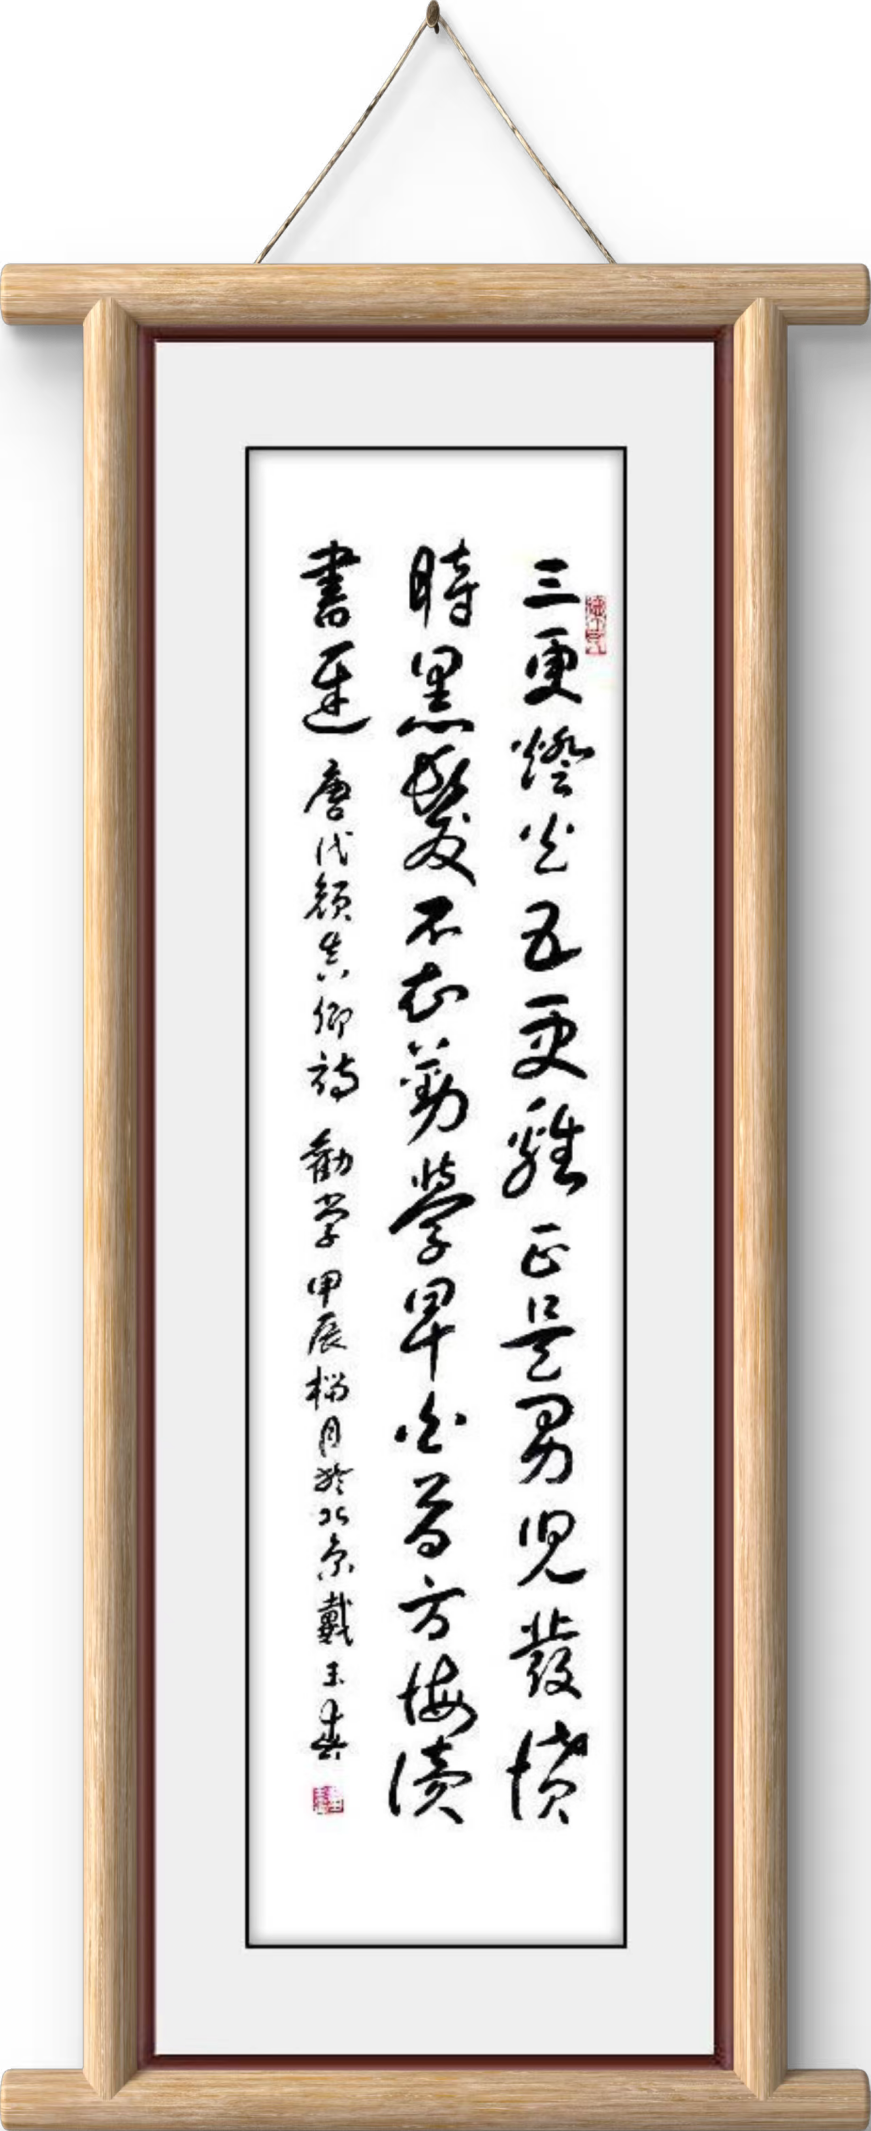 三更燈火五更雞正是男兒發憤
時黑髮不知勤學早白首方悔讀
書遲 唐代顏真卿詩 勸学 甲辰桐月於北京戴玉春